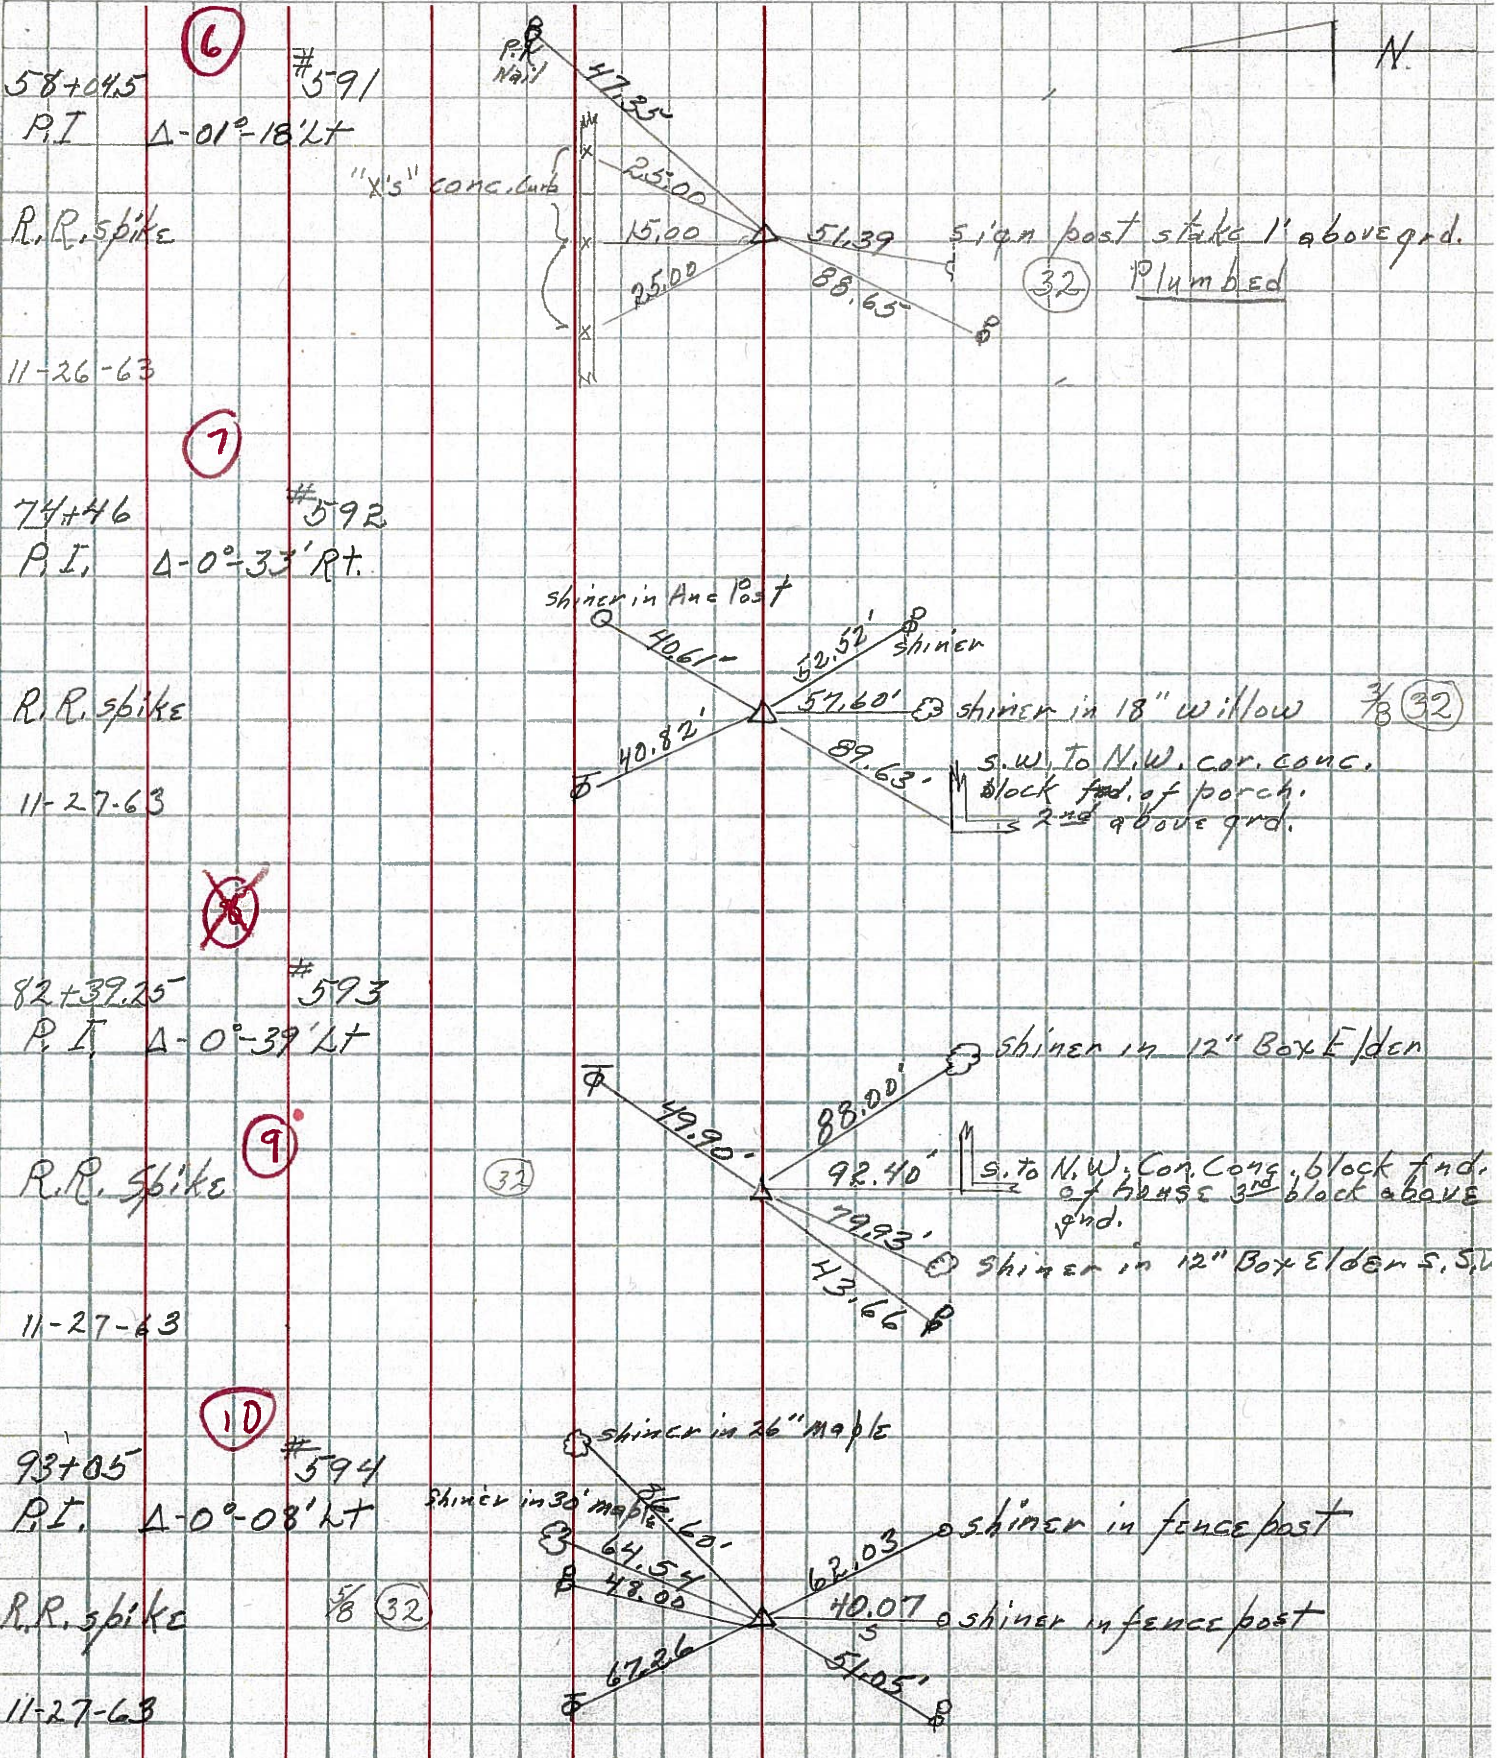 6
58+04.5 #591
P.I. Δ-01°-18' Lt
R.R. spike
11-26-63
P.K.
Nail
47.35
"X's" conc. Curb
25.00
15.00
25.00
51.39
88.65
sign post stake 1' above grd.
32 Plumbed
N.
7
74+46 #592
P.I. Δ-0°-33' Rt.
R.R. spike
11-27-63
shiner in Anc Post
40.61
40.82'
52.52'
shiner
57.60' shiner in 18" willow 3/8 32
89.63
s.w. To N.W. cor. conc.
block fnd. of porch.
2nd above grd.
82+39.25 #593
P.I. Δ-0°-39' Lt
9
R.R. Spike
11-27-63
32
49.90'
88.00' shiner in 12" Box Elder
92.40' s. to N.W. Cor. Conc. block fnd.
of house 3rd block above
gnd.
79.93' shiner in 12" Box Elder S.S.
43.66
10
93+05 #594
P.I. Δ-0°-08' Lt
R.R. spike 5/8 32
11-27-63
shiner in 26" maple
shiner in 30' maple
64.54
48.00
67.26
62.03 shiner in fence post
40.07 shiner in fence post
S
51.05'